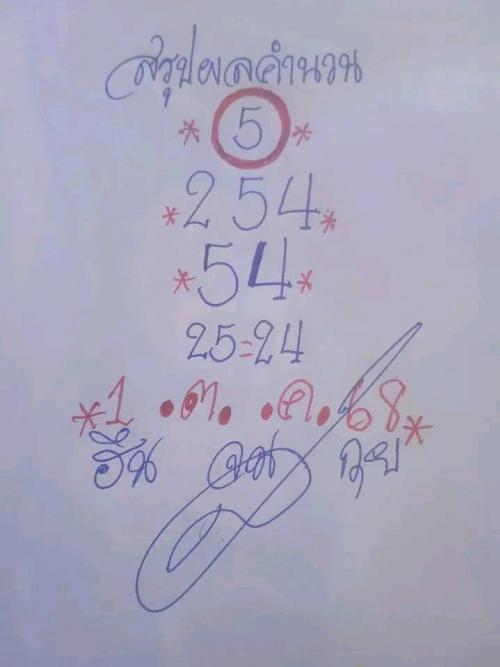 สรุปผลคำนวน
* 5 *
*254*
*54*
25=24
*1 .ต. .ค. 68*
ฮึน จน